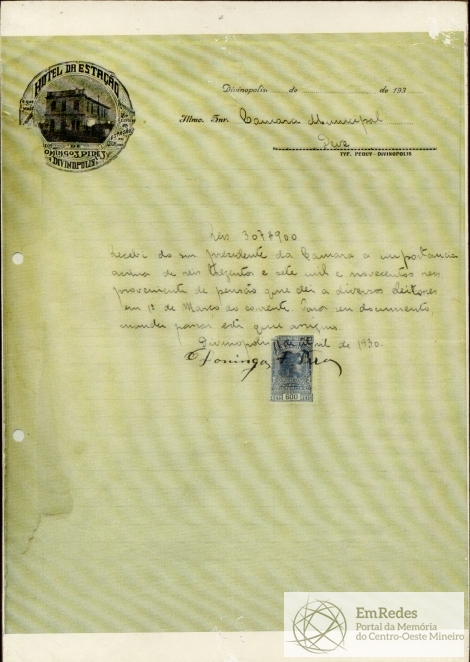 HOTEL DA ESTAÇÃO
DOMINGOS PIRES
DIVINOPOLIS
Divinopolis, de de 193
Illmo. Snr. Camara Municipal
TYP. PEQUY - DIVINOPOLIS
Reis 307$900
Recebi do snr presidente da Camara a importancia
acima de reis trezentos e sete mil e novecentos reis
proveniente de pensão que dei a diversos eleitores
em 1º de Março do corrente. Para um documento
mandei passar este que assigno.
Divinopolis de Abril de 1930.
Domingos
600
EmRedes
Portal da Memória
do Centro-Oeste Mineiro